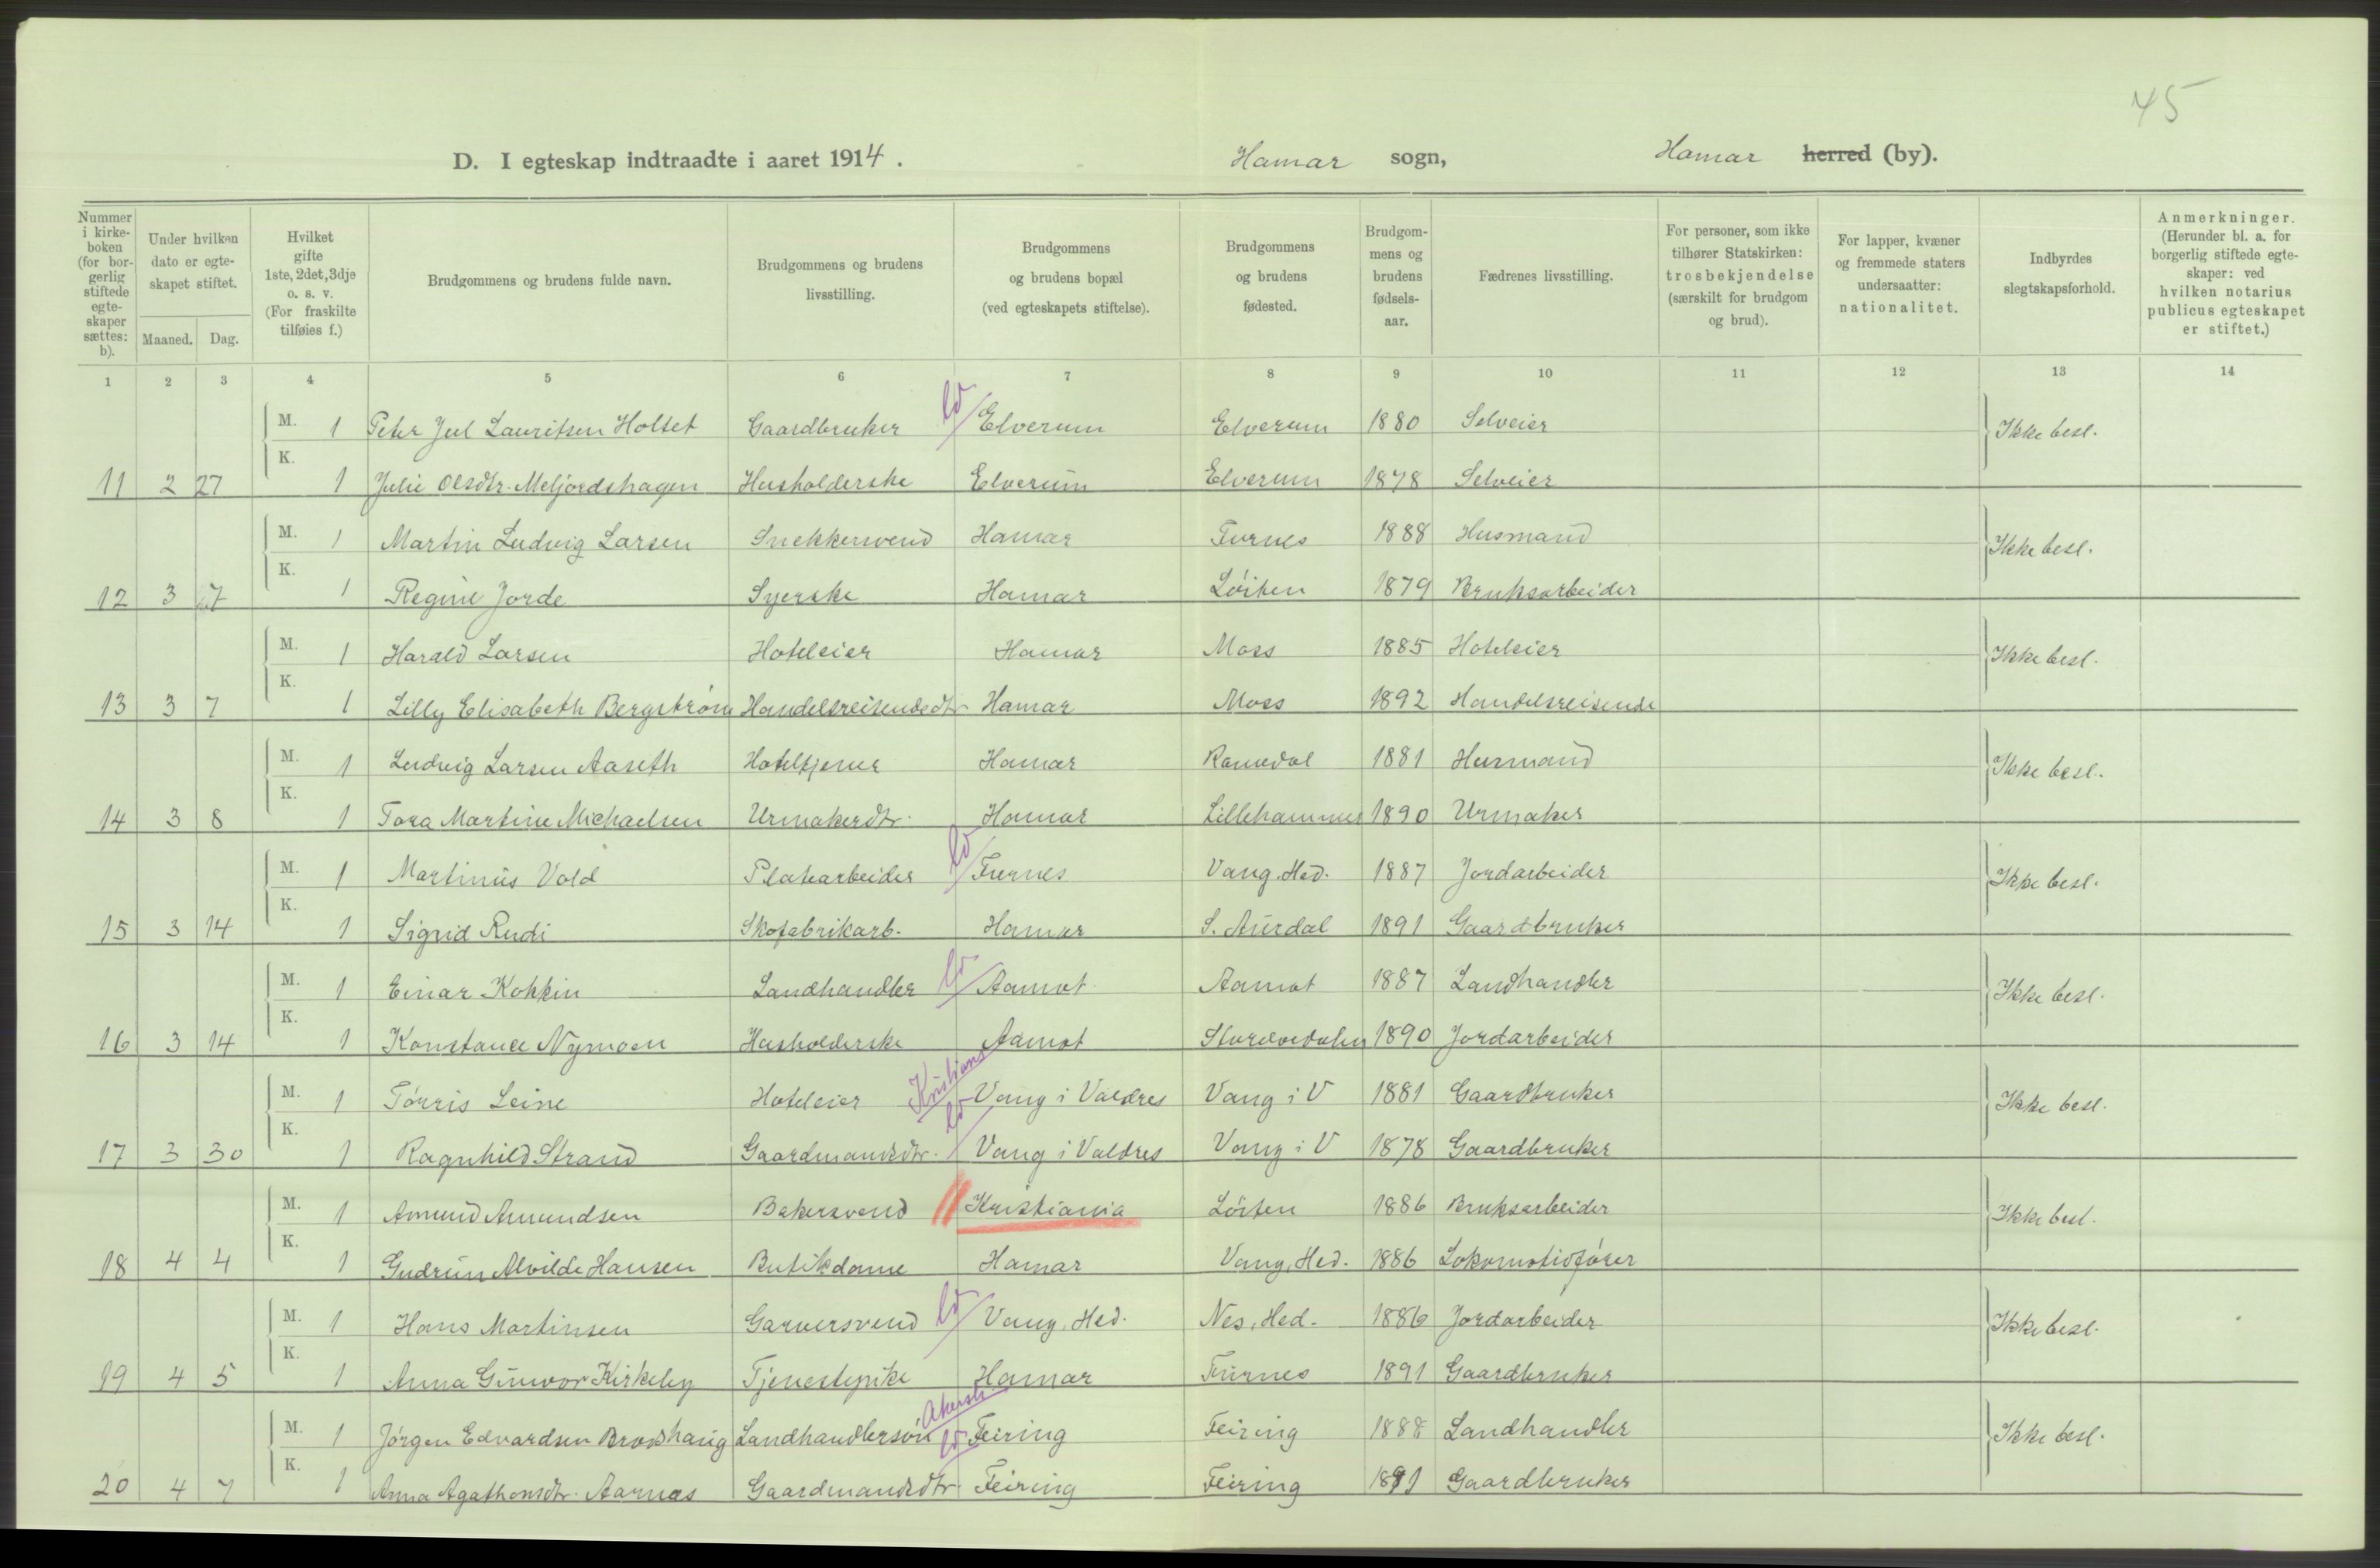 45
D. I egteskap indtraadte i aaret 1914. Hamar sogn, Hamar herred (by).
Nummer i kirkeboken (for borgerlig stiftede egteskaper sættes: b). Under hvilken dato er egteskapet stiftet. Maaned. Dag. Hvilket gifte 1ste, 2det, 3dje o. s. v. (For fraskilte tilføies f.) Brudgommens og brudens fulde navn. Brudgommens og brudens livsstilling. Brudgommens og brudens bopæl (ved egteskapets stiftelse). Brudgommens og brudens fødested. Brudgommens og brudens fødselsaar. Fædrenes livsstilling. For personer, som ikke tilhører Statskirken: trosbekjendelse (særskilt for brudgom og brud). For lapper, kvæner og fremmede staters undersaatter: nationalitet. Indbyrdes slegtskapsforhold. Anmerkninger. (Herunder bl. a. for borgerlig stiftede egteskaper: ved hvilken notarius publicus egteskapet er stiftet.)
1 2 3 4 5 6 7 8 9 10 11 12 13 14
M. 1 Peter Juel Lauritsen Holtet Gaardbruker Elverum Elverum 1880 Selveier Ikke besl.
11 2 27 K. 1 Julie Olsdtr. Meljordshagen Husholderske Elverum Elverum 1878 Selveier
M. 1 Martin Ludvig Larsen Snekkersvend Hamar Furnes 1888 Husmand Ikke besl.
12 3 7 K. 1 Regine Jorde Syerske Hamar Löiten 1879 Bruksarbeider
M. 1 Harald Larsen Hoteleier Hamar Moss 1885 Hoteleier Ikke besl.
13 3 7 K. 1 Lilly Elisabeth Bergström Handelsreisendedtr Hamar Moss 1892 Handelsreisende
M. 1 Ludvig Larsen Aaseth Hoteltjener Hamar Romedal 1881 Husmand Ikke besl.
14 3 8 K. 1 Tora Martine Michaelsen Urmakerdtr. Hamar Lillehammer 1890 Urmaker
M. 1 Martinus Vold Platearbeider Furnes Vang. Hed. 1887 Jordarbeider Ikke besl.
15 3 14 K. 1 Sigrid Rudi Skofabrikarb. Hamar S. Aurdal 1891 Gaardbruker
M. 1 Einar Kokkin Landhandler Aamot Aamot 1887 Landhandler Ikke besl.
16 3 14 K. 1 Konstance Nymoen Husholderske Aamot Storelvedalen 1890 Jordarbeider
M. 1 Törris Leine Hoteleier Kristians Vang i Valdres Vang i V 1881 Gaardbruker Ikke besl.
17 3 30 K. 1 Ragnhild Strand Gaardmandsdtr. Vang i Valdres Vang i V 1878 Gaardbruker
M. 1 Amund Amundsen Bakersvend Kristiania Löiten 1886 Bruksarbeider Ikke besl.
18 4 4 K. 1 Gudrun Alvilde Hansen Butikdame Hamar Vang, Hed. 1886 Lokomotivförer
M. 1 Hans Martinsen Garversvend Vang, Hed. Nes, Hed. 1886 Jordarbeider Ikke besl.
19 4 5 K. 1 Anna Gunvor Kirkeby Tjenestepike Hamar Furnes 1891 Gaardbruker
M. 1 Jörgen Edvardsen Landhandlersön Akersh. Feiring Feiring 1888 Landhandler Ikke besl.
20 4 7 K. 1 Anna Agathonsdtr. Aarnæs Gaardmandsdtr. Feiring Feiring 1891 Gaardbruker